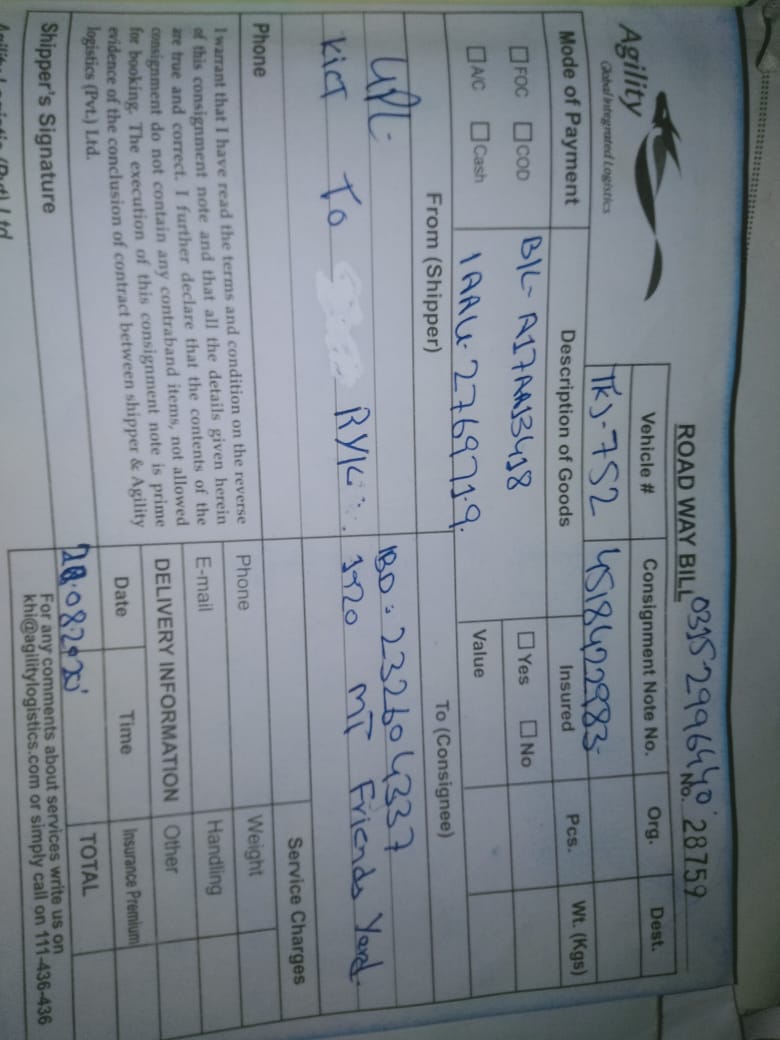 ROAD WAY BILL 0315-2996440 No. 28759
Agility
Global Integrated Logistics
Vehicle # Consignment Note No. Org. Dest.
TKJ-752 4518422983
Mode of Payment Description of Goods Insured Pcs. Wt. (Kgs)
FOC COD B/L- A17AA13418 Yes No
A/C Cash IAAU-2769719 Value
From (Shipper) To (Consignee)
UPL IBD: 232604337
KICT To RYK 1x20 MT Friends Yard
Service Charges
Phone Phone Weight
I warrant that I have read the terms and condition on the reverse
of this consignment note and that all the details given herein
are true and correct. I further declare that the contents of the
consignment do not contain any contraband items, not allowed
for booking. The execution of this consignment note is prime
evidence of the conclusion of contract between shipper & Agility
logistics (Pvt.) Ltd.
E-mail Handling
DELIVERY INFORMATION Other
Date Time Insurance Premium
08.2020 TOTAL
Shipper's Signature
For any comments about services write us on
khi@agilitylogistics.com or simply call on 111-436-436
Agility Logistic (Pvt) Ltd